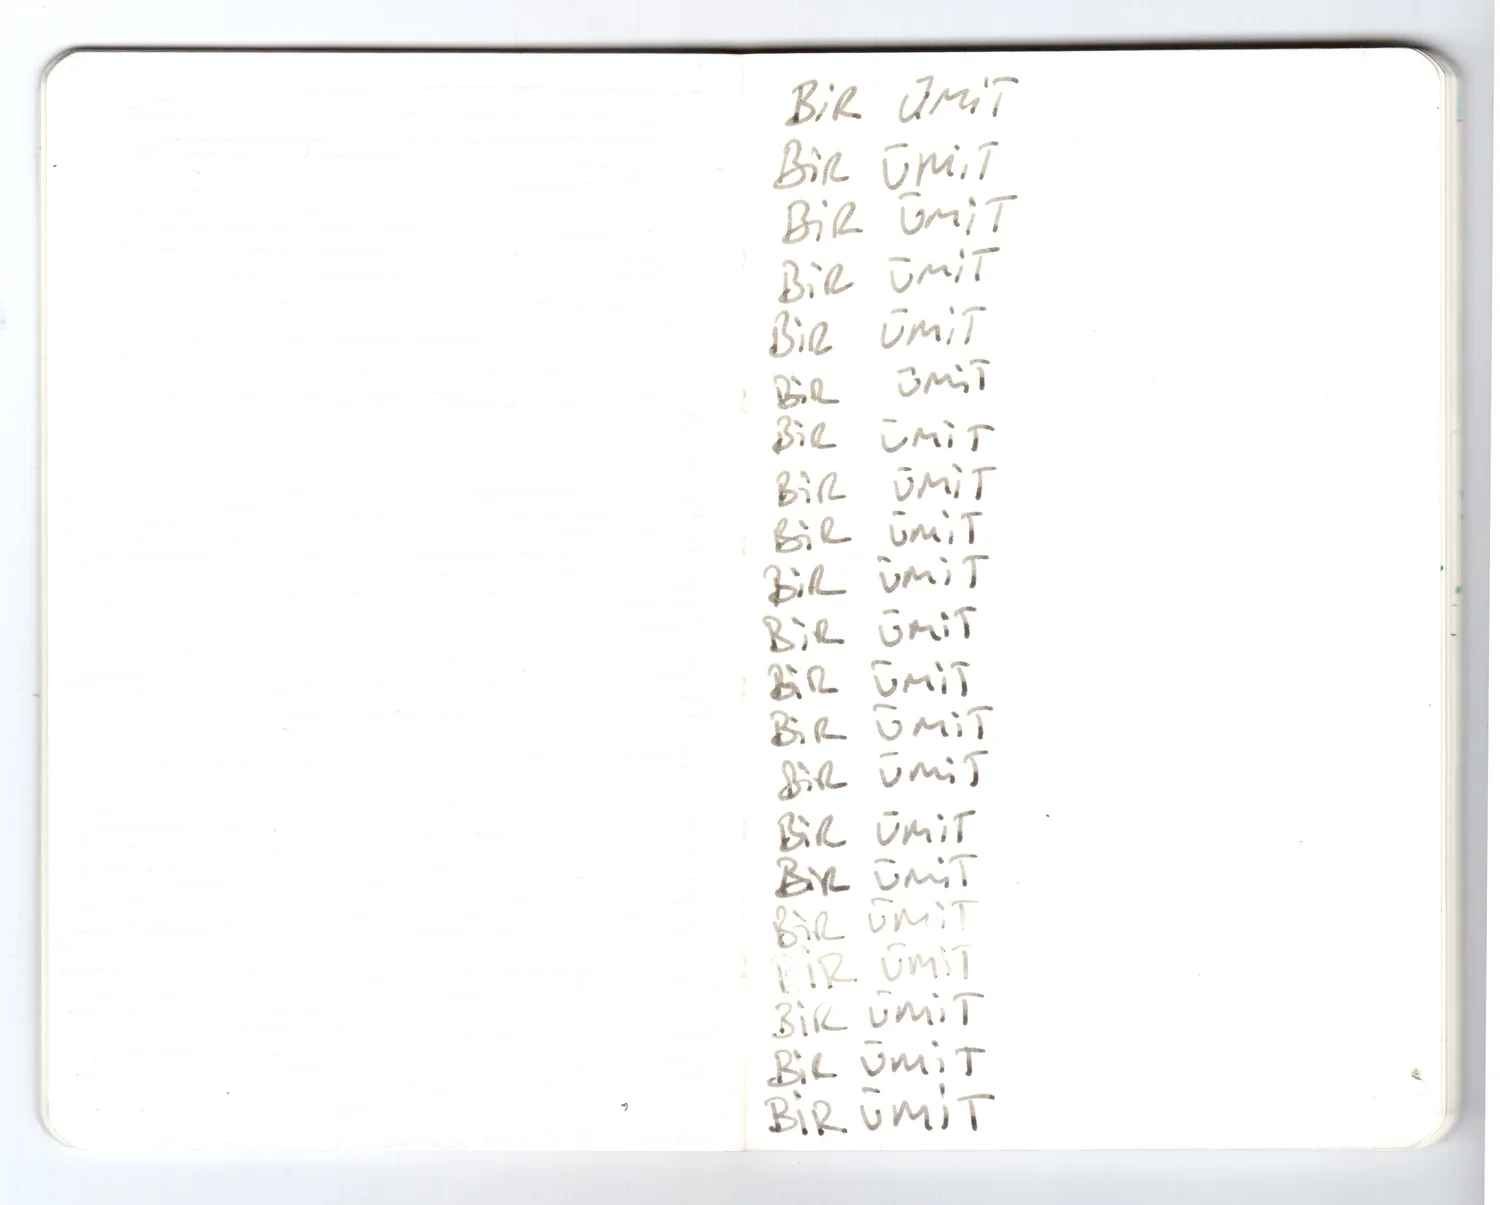 BİR ÜMİT
BİR ÜMİT
BİR ÜMİT
BİR ÜMİT
BİR ÜMİT
BİR ÜMİT
BİR ÜMİT
BİR ÜMİT
BİR ÜMİT
BİR ÜMİT
BİR ÜMİT
BİR ÜMİT
BİR ÜMİT
BİR ÜMİT
BİR ÜMİT
BİR ÜMİT
BİR ÜMİT
BİR ÜMİT
BİR ÜMİT
BİR ÜMİT
BİR ÜMİT